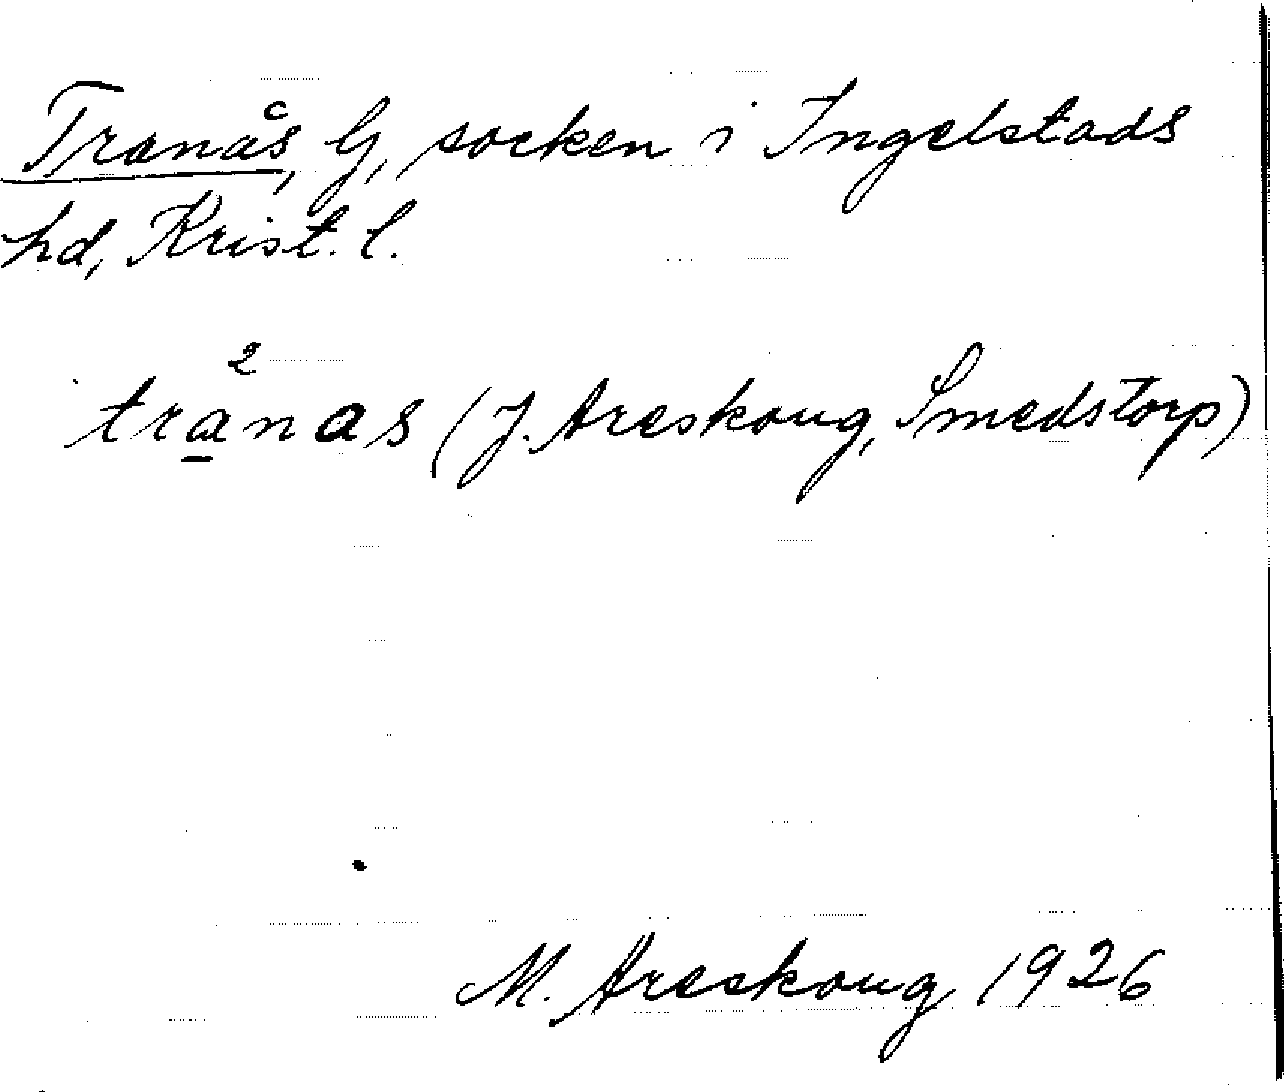 Tranås, G, socken i Ingelstads
hd, Krist. l.
trånas (J. Areskoug, Smedstorp)
M. Areskoug 1926